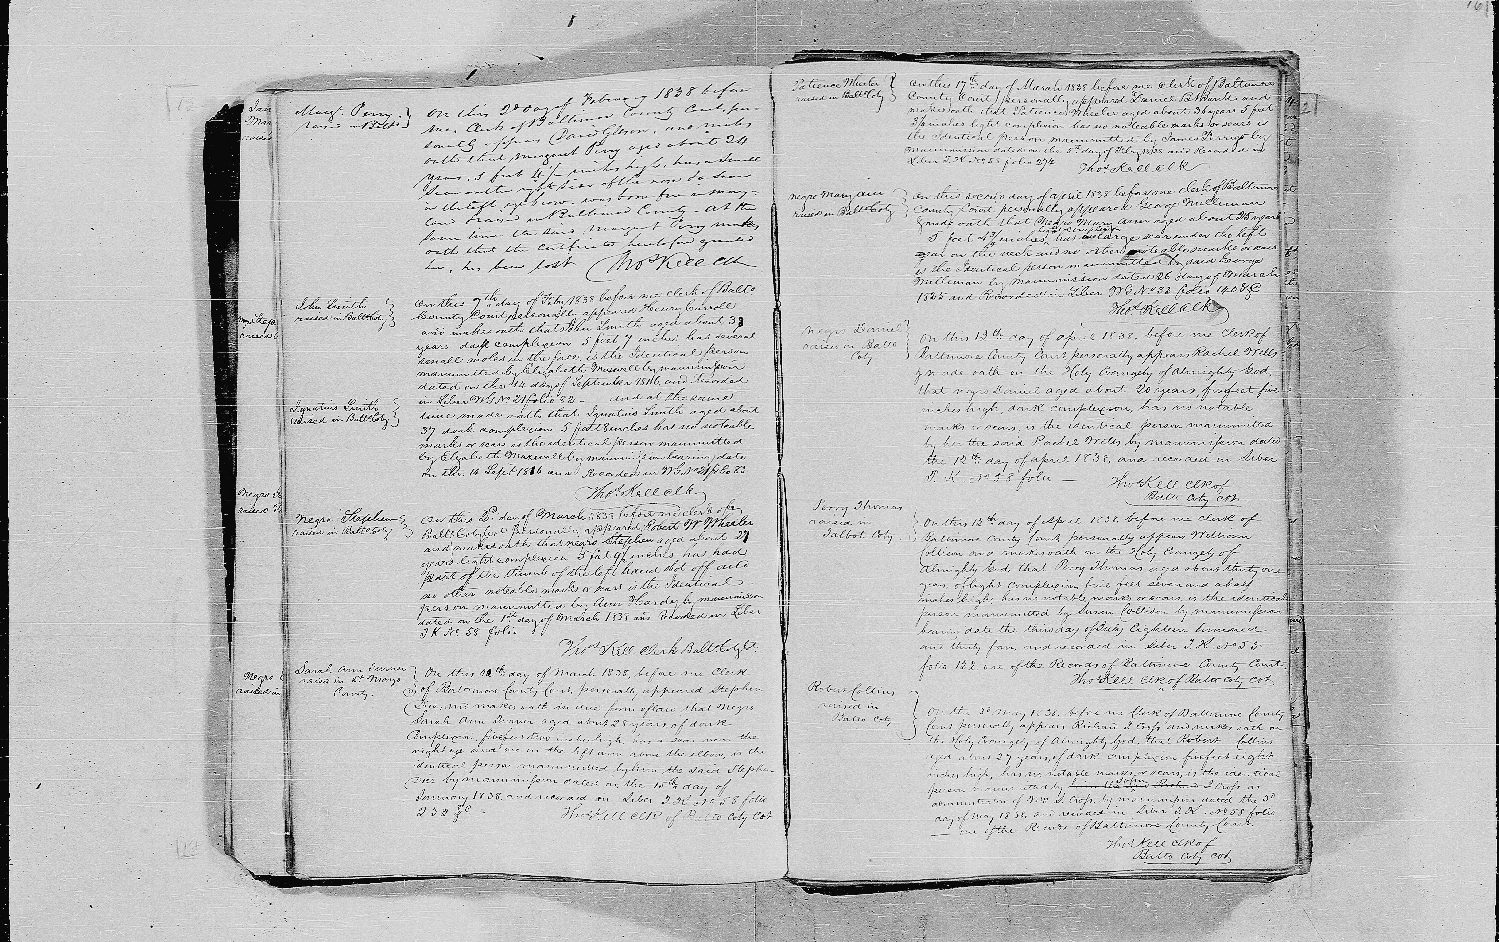 Margt. Perry
raised in Balto
On this 2d day of February 1838 before
me, Clerk of Baltimore County Court, per-
sonally appears David Gibson, and makes
oath that Margaret Perry aged about 24
years, 5 feet 4 1/2 inches high, has a small
scar on the right side of the nose
in the left eye brow, was born free
and raised in Baltimore County - At the
same time the said Margaret Perry makes
oath that the Certificate heretofore granted
her, has been lost Thos Kell Clk
John Smith
raised in Balto Coty
On this 7th day of Feby 1838 before me Clerk of Balto
County Court personally appeared Henry Carroll
and makes oath that John Smith aged about 33
years dark complexion 5 feet 7 inches has several
small moles in the face, is the Identical person
manumitted by Elizabeth Maxwell by manumission
dated on the 14 day of September 1816 and recorded
in Liber W G No 21 folio 82 - and at the same
Ignatius Smith
raised in Balto Coty
time made oath that Ignatius Smith aged about
37 dark complexion 5 feet 8 inches has no noteable
marks or scars is the identical person manumitted
by Elizabeth Maxwell by manumission bearing date
on the 14 Sept 1816 and Recorded in W G No 21 folio 83
Thos Kell clk
Negro Stephen
raised in Balto Coty
On this 2d day of March 1838 before me clerk of
Balto Coty Court personally appeared Robert W Wheeler
and makes oath that negro Stephen aged about 27
years light complexion 5 feet 9 1/2 inches has had
part of the thumb of the left hand shot off and
no other noteable marks or scars is the Identical
person manumitted by Hardey by manumission
dated on the 1st day of March 1838 and Recorded in Liber
T K No 58 folio
Thos Kell Clerk Balto Coty Ct
Sarah Ann Turner
raised in St Marys
County.
On this 12th day of March 1838, before me Clerk
of Baltimore County Court, personally appeared Stephen
and makes oath in due form of law that Negro
Sarah Ann Turner aged about 28 years of dark
Complexion, five feet two inches high, has a scar near the
right eye and one on the left arm above the elbow, is the
identical person manumitted by him the said Stephen
by manumission dated on the 15th day of
January 1838 and recorded in Liber T. K. No 58 folio
232 &c
Thos Kell Clk of Balto Coty Cot
Patience Wheeler
raised in Balto Coty
On this 17th day of March 1838 before me Clerk of Baltimore
County Court personally appeared Daniel B and
makes oath that Patience Wheeler aged about 38 years 5 feet
3 1/2 inches light complexion has no noteable marks or scars is
the Identical Person manumitted by James by
manumission dated on the 5th day of Feby 1838 and Recorded in
Liber T. K. No 58 folio 274
Thos Kell clk
negro Mary Ann
raised in Balto Coty
On this second day of april 1838 before me clerk of Baltimore
County Court personally appeared George Milleman
& made oath that Negro Mary Ann aged about 28 years
5 feet 4 1/2 inches, has a large scar under the left
ear on the neck and no other noteable marks or scars
is the Identical person manumitted by said George
Milleman by manumission dated 26 day of March
and Recorded in Liber W G No 22 folio 140 &c
Thos Kell clk
Negro Daniel
raised in Balto
Coty
On this 12th day of april 1838. before me Clerk of
Baltimore County Court personally appears Rachel Wells
& made oath on the Holy Evangely of Almighty God,
that negro Daniel aged about 20 years, five feet five
inches high, dark complexion, has no notable
marks or scars, is the identical person manumitted
by her the said Rachel Wells by manumission dated
the 12th day of april 1838, and recorded in Liber
T. K No 58 folio -
Thos Kell Clk of
Balto Coty Cot
Perry Thomas
raised in
Talbot Coty
On this 12th day of April 1838. before me Clerk of
Baltimore County Court personally appears William
Collison and makes oath on the Holy Evangely of
Almighty God, that Perry Thomas aged about thirty one
years of light complexion five feet seven and a half
inches high, has no notable marks or scars, is the identical
person manumitted by Susan Collison by manumission
bearing date the third day of July Eighteen hundred
and thirty four, and recorded in Liber T. K No 35
folio 122 one of the Records of Baltimore County Court
Thos Kell Clk of Balto Coty Cot
Robert Collins
raised in
Balto Coty
On the 3d may 1838. before me Clerk of Baltimore County
Court personally appears Richard I Cross and makes oath on
the Holy Evangely of Almighty God, that Robert Collins
aged about 27 years, of dark complexion five feet eight
inches high, has no notable marks or scars, is the identical
person manumitted by John I Cross as
administrator of Cross, by manumission dated the 3d
day of may 1838, and recorded in Liber T. K. No 58 folio
one of the Records of Baltimore County Court.
Thos Kell Clk of
Balto Coty Cot